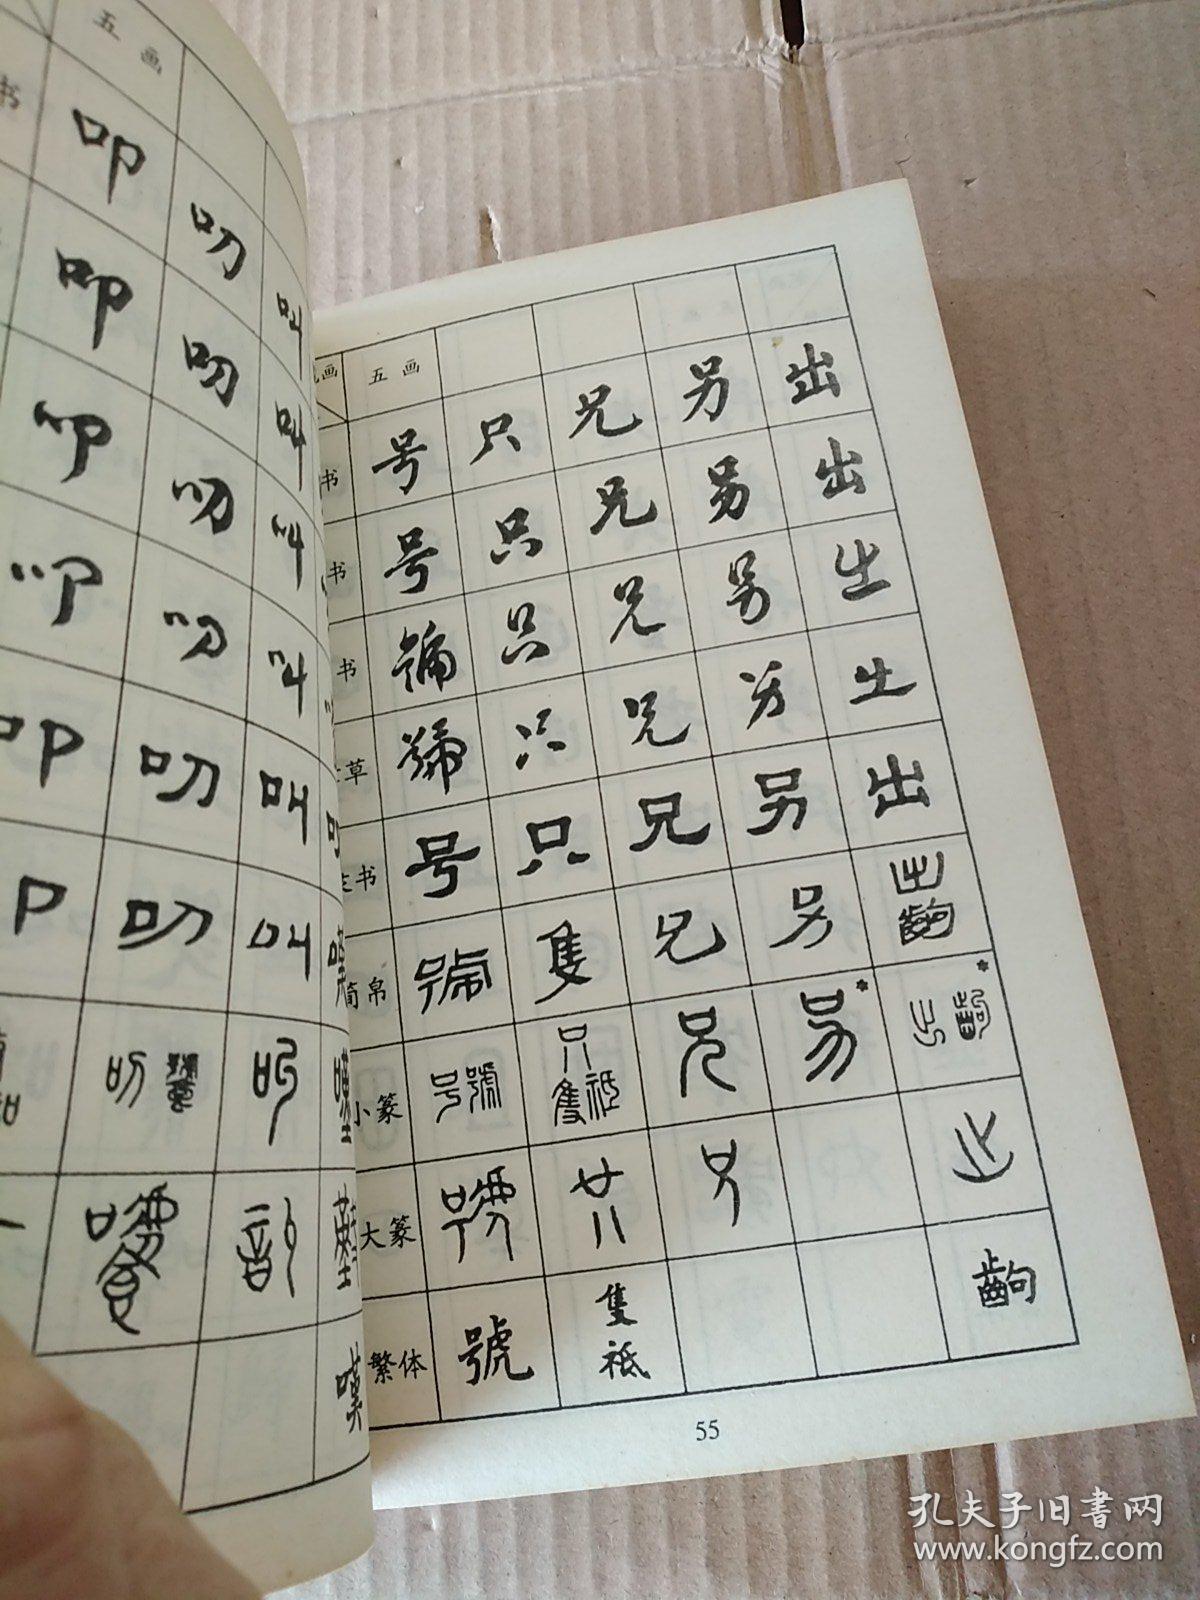 五画
书
叩 叨 叫
叩 叨 叫
叩 叨 叫
叩 叨 叫
叩 叨 叫
叨 叫
叨
嘆
画 五画
书 号 只 兄 另 出
书 号 只 兄 另 出
书 號 只 兄 另 出
草 號 只 兄 另 出
书 号 只 兄 另 出
简帛 號 隻 兄 另 出 齣
小篆 号 號 只 隻 祇 兄 另* 出 齣*
大篆
繁体 號 隻 祇 齣
55
孔夫子旧书网
www.kongfz.com